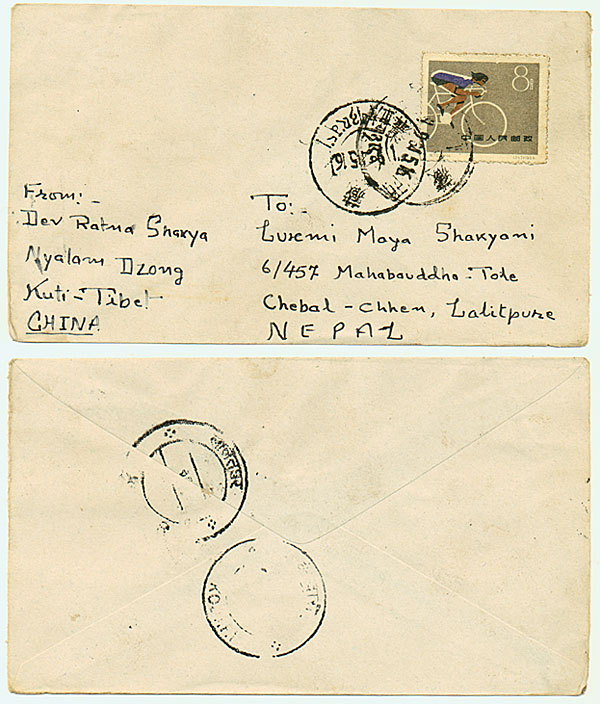 8分
中国人民邮政
藏
藏
From:-
Dev Ratna Shakya
Nyalam Dzong
Kuti-Tibet
CHINA
To:-
Luxemi Maya Shakyani
6/457 Mahabauddha-Tole
Chebal-chhen, Lalitpure
NEPAL
ललितपुर